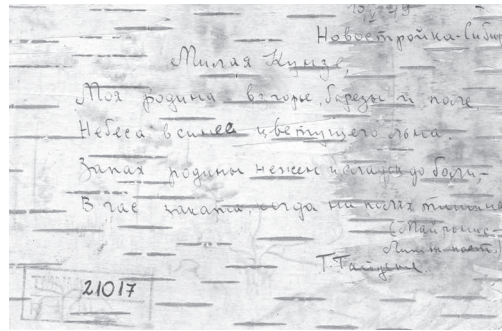 Новостройка-Сибирь
Милая Кунзе,
Моя родина взгорье, березы и поле
Небеса в синее цветущего льна
Запах родины нежен и сладок до боли-
В час заката, когда на полях тишина
(Майронис-
Т. Гайдене
21017